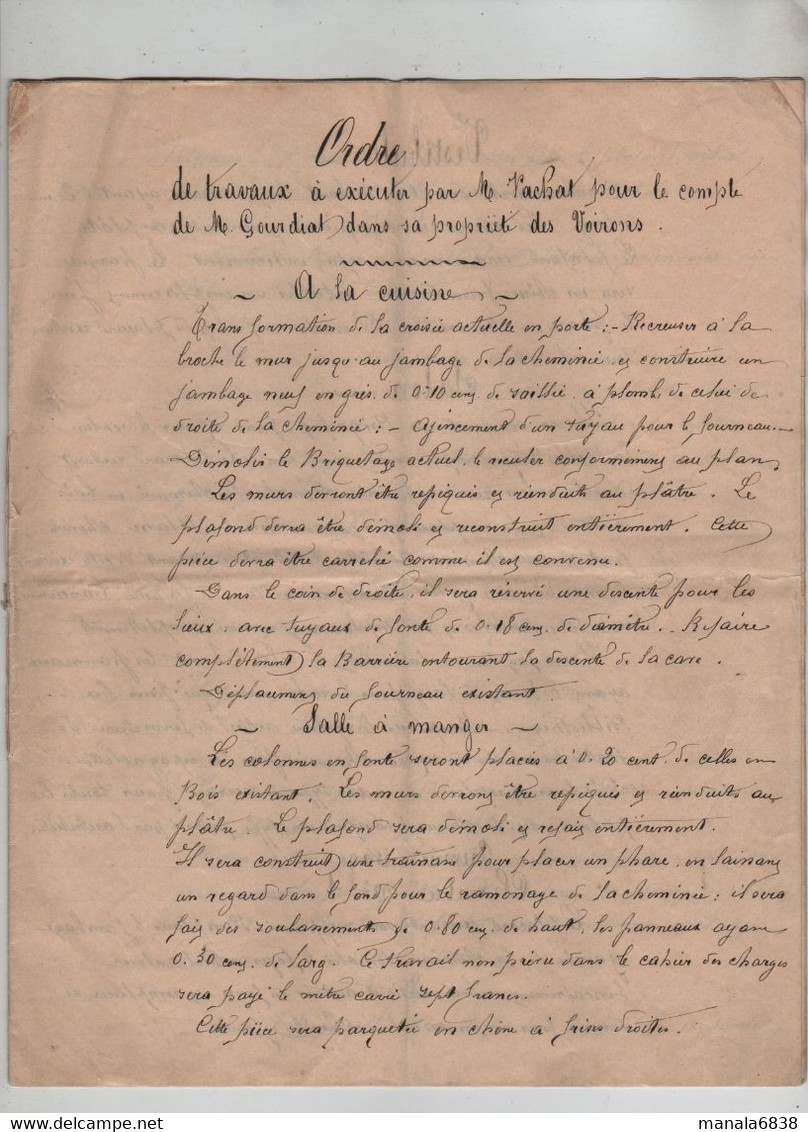 Ordre
de travaux à exécuter par M. Vachat pour le compte
de M. Gourdiat dans sa propriété des Voirons.
A la cuisine
Transformation de la croisée actuelle en porte : - Recreuser à la
broche le mur jusqu'au jambage de la cheminée et construire un
jambage neuf en grés de 0.10 cent. de saillie, à plomb de celui de
droite de la cheminée : - Agencement d'un tuyau pour le fourneau. -
Démolir le Briquetage actuel, le reculer conformément au plan,
Les murs devront être repiqués et renduits au plâtre. Le
plafond devra être démoli et reconstruit entièrement. Cette
pièce devra être carrelée comme il est convenu.
Dans le coin de droite, il sera réservé une descente pour les
lieux, avec tuyaux de fonte de 0.18 cent. de diamètre. - Refaire
complètement la Barrière entourant la descente de la cave.
Déplacement du fourneau existant.
- Salle à manger -
Les colonnes en fonte seront placées à 0.20 cent. de celles en
Bois existant. Les murs devront être repiqués et renduits au
plâtre. Le plafond sera démoli et refait entièrement.
Il sera construit une pour placer un phare, en laissant
un regard dans le fond pour le ramonage de la cheminée : il sera
fait des soubassements de 0.80 cent. de haut, les panneaux ayant
0.30 cent. de larg. Ce travail non prévu dans le cahier des charges
sera payé le mètre carré sept francs.
Cette pièce sera parquetée en chêne à frises droites.
www.delcampe.net
manala6838